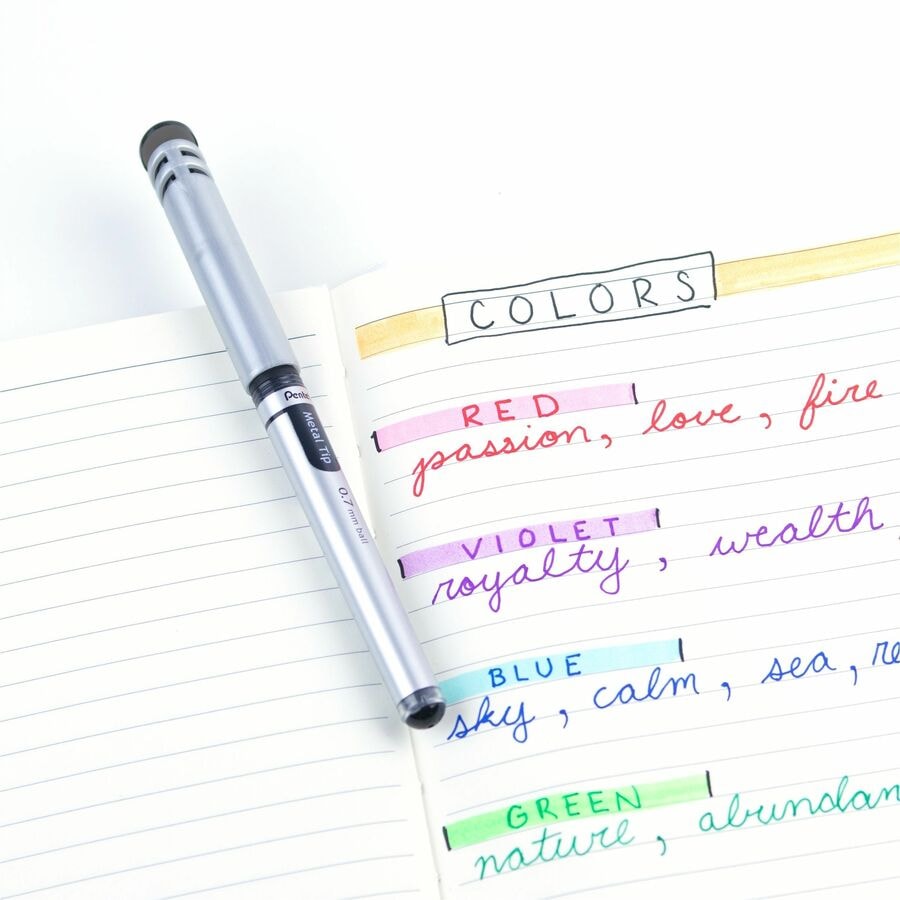 COLORS
RED
passion, love, fire
VIOLET
royalty, wealth
BLUE
sky, calm, sea,
GREEN
nature,
Metal Tip
0.7 mm ball